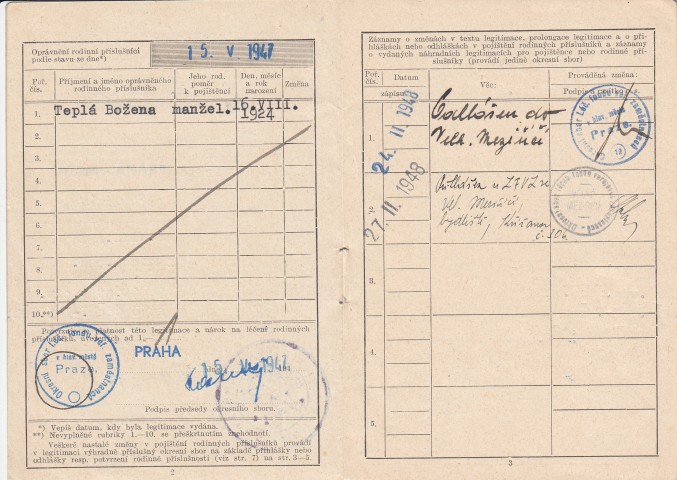 Oprávnění rodinní příslušníci
podle stavu ze dne*)
15. V 1947
Poř. čís.
Příjmení a jméno oprávněného rodinného příslušníka
Jeho rod. poměr k pojištěnci
Den, měsíc a rok narození
Změna
1. Teplá Božena manžel. 16.VIII. 1924
2.
3.
4.
5.
6.
7.
8.
9.
10.**)
Potvrzujeme platnost této legitimace a nárok na léčení rodinných
příslušníků, uvedených ad 1.
PRAHA
15. V 1947
194
Okresní sbor Léč. fondu veř. zaměstnanců
v hlav. městě
Praze.
Podpis předsedy okresního sboru.
*) Vepiš datum, kdy byla legitimace vydána.
**) Nevyplněné rubriky 1.—10. se přeškrtnutím znehodnotí.
Veškeré nastalé změny v pojištění rodinných příslušníků provádí
v legitimaci výhradně příslušný okresní sbor na základě přihlášky nebo
odhlášky resp. potvrzení rodinné příslušnosti (viz str. 7) na str. 3—5.
2
Záznamy o změnách v textu legitimace, prolongace legitimace a o při-
hláškách nebo odhláškách v pojištění rodinných příslušníků a záznamy
o vydaných náhradních legitimacích pro pojištěnce nebo rodinné pří-
slušníky (provádí jedině okresní sbor)
Poř. čís.
Datum
zápisu
Věc:
Provedená změna:
Podpis a razítko
1.
24. II 1948
Odhlášen do
Velk. Meziříčí
Okresní sbor Léč. fondu veř. zaměstnanců
v hlav. městě
Praze.
(13)
2.
27. II 1948
Přihlášen u LFVZ ve
Vel. Meziříčí,
bydliště, Křižanov
č. 106.
3.
4.
5.
3